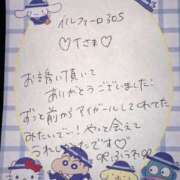 イルフィーロ305
♡Tさま♡
お誘い頂いて
ありがとうございました!
ずっと前からアイガールしてくれてた
みたいで…! やっと会えて
うれしかったです♡